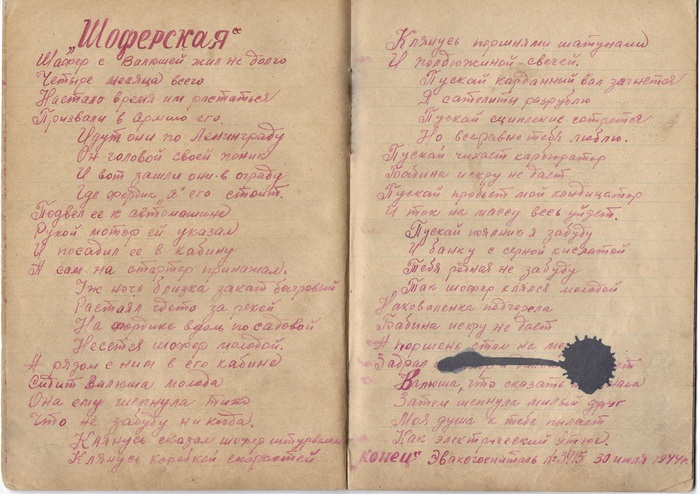 „Шоферская"
Шафер с Валюшей жил не долго
Четыре месяца всего
Настало время им растаться
Призвали в армию его
Идут они по Ленинграду
Он головой своей поник
И вот зашли они в ограду
Где фордик А его стоит.
Подвел ее к автомашине
Рукой мотор ей указал
И посадил ее в кабину
А сам на стартер принажал.
Уж ночь близка закат багровый
Растаял гдето за рекой
На фордике вдоль по садовой
Несется шофер молодой.
А рядом с ним в его кабине
Сидит Валюша молода
Она ему шепнула тихо
Что не забуду никогда.
Клянусь сказал шофер штурвалом
Клянусь коробкой скоростей
Клянусь поршнями шатунами
И полдюжиной свечей.
Пускай карданный вал загнется
Я сателиты разрублю
Пускай сцепление сотрется
Но всеравно тебя люблю.
Пускай чихает карбюратор
Бабина искру не даст
Пускай пробьет мой кондицатор
И ток на массу весь уйдет.
Пускай поялник я забуду
И банку с серной кислотой
Тебя родная не забуду
Так шофер клялся молодой
Наковаленка подгорела
Бабина искру не даст
А поршень стал не
Забрал
Валюша, что сказать
Затем шепнула милый друг
Моя душа к тебе пылает
Как электрический утюг.
„конец" Эвакогоспиталь № 3415 30 июля 1944 г.